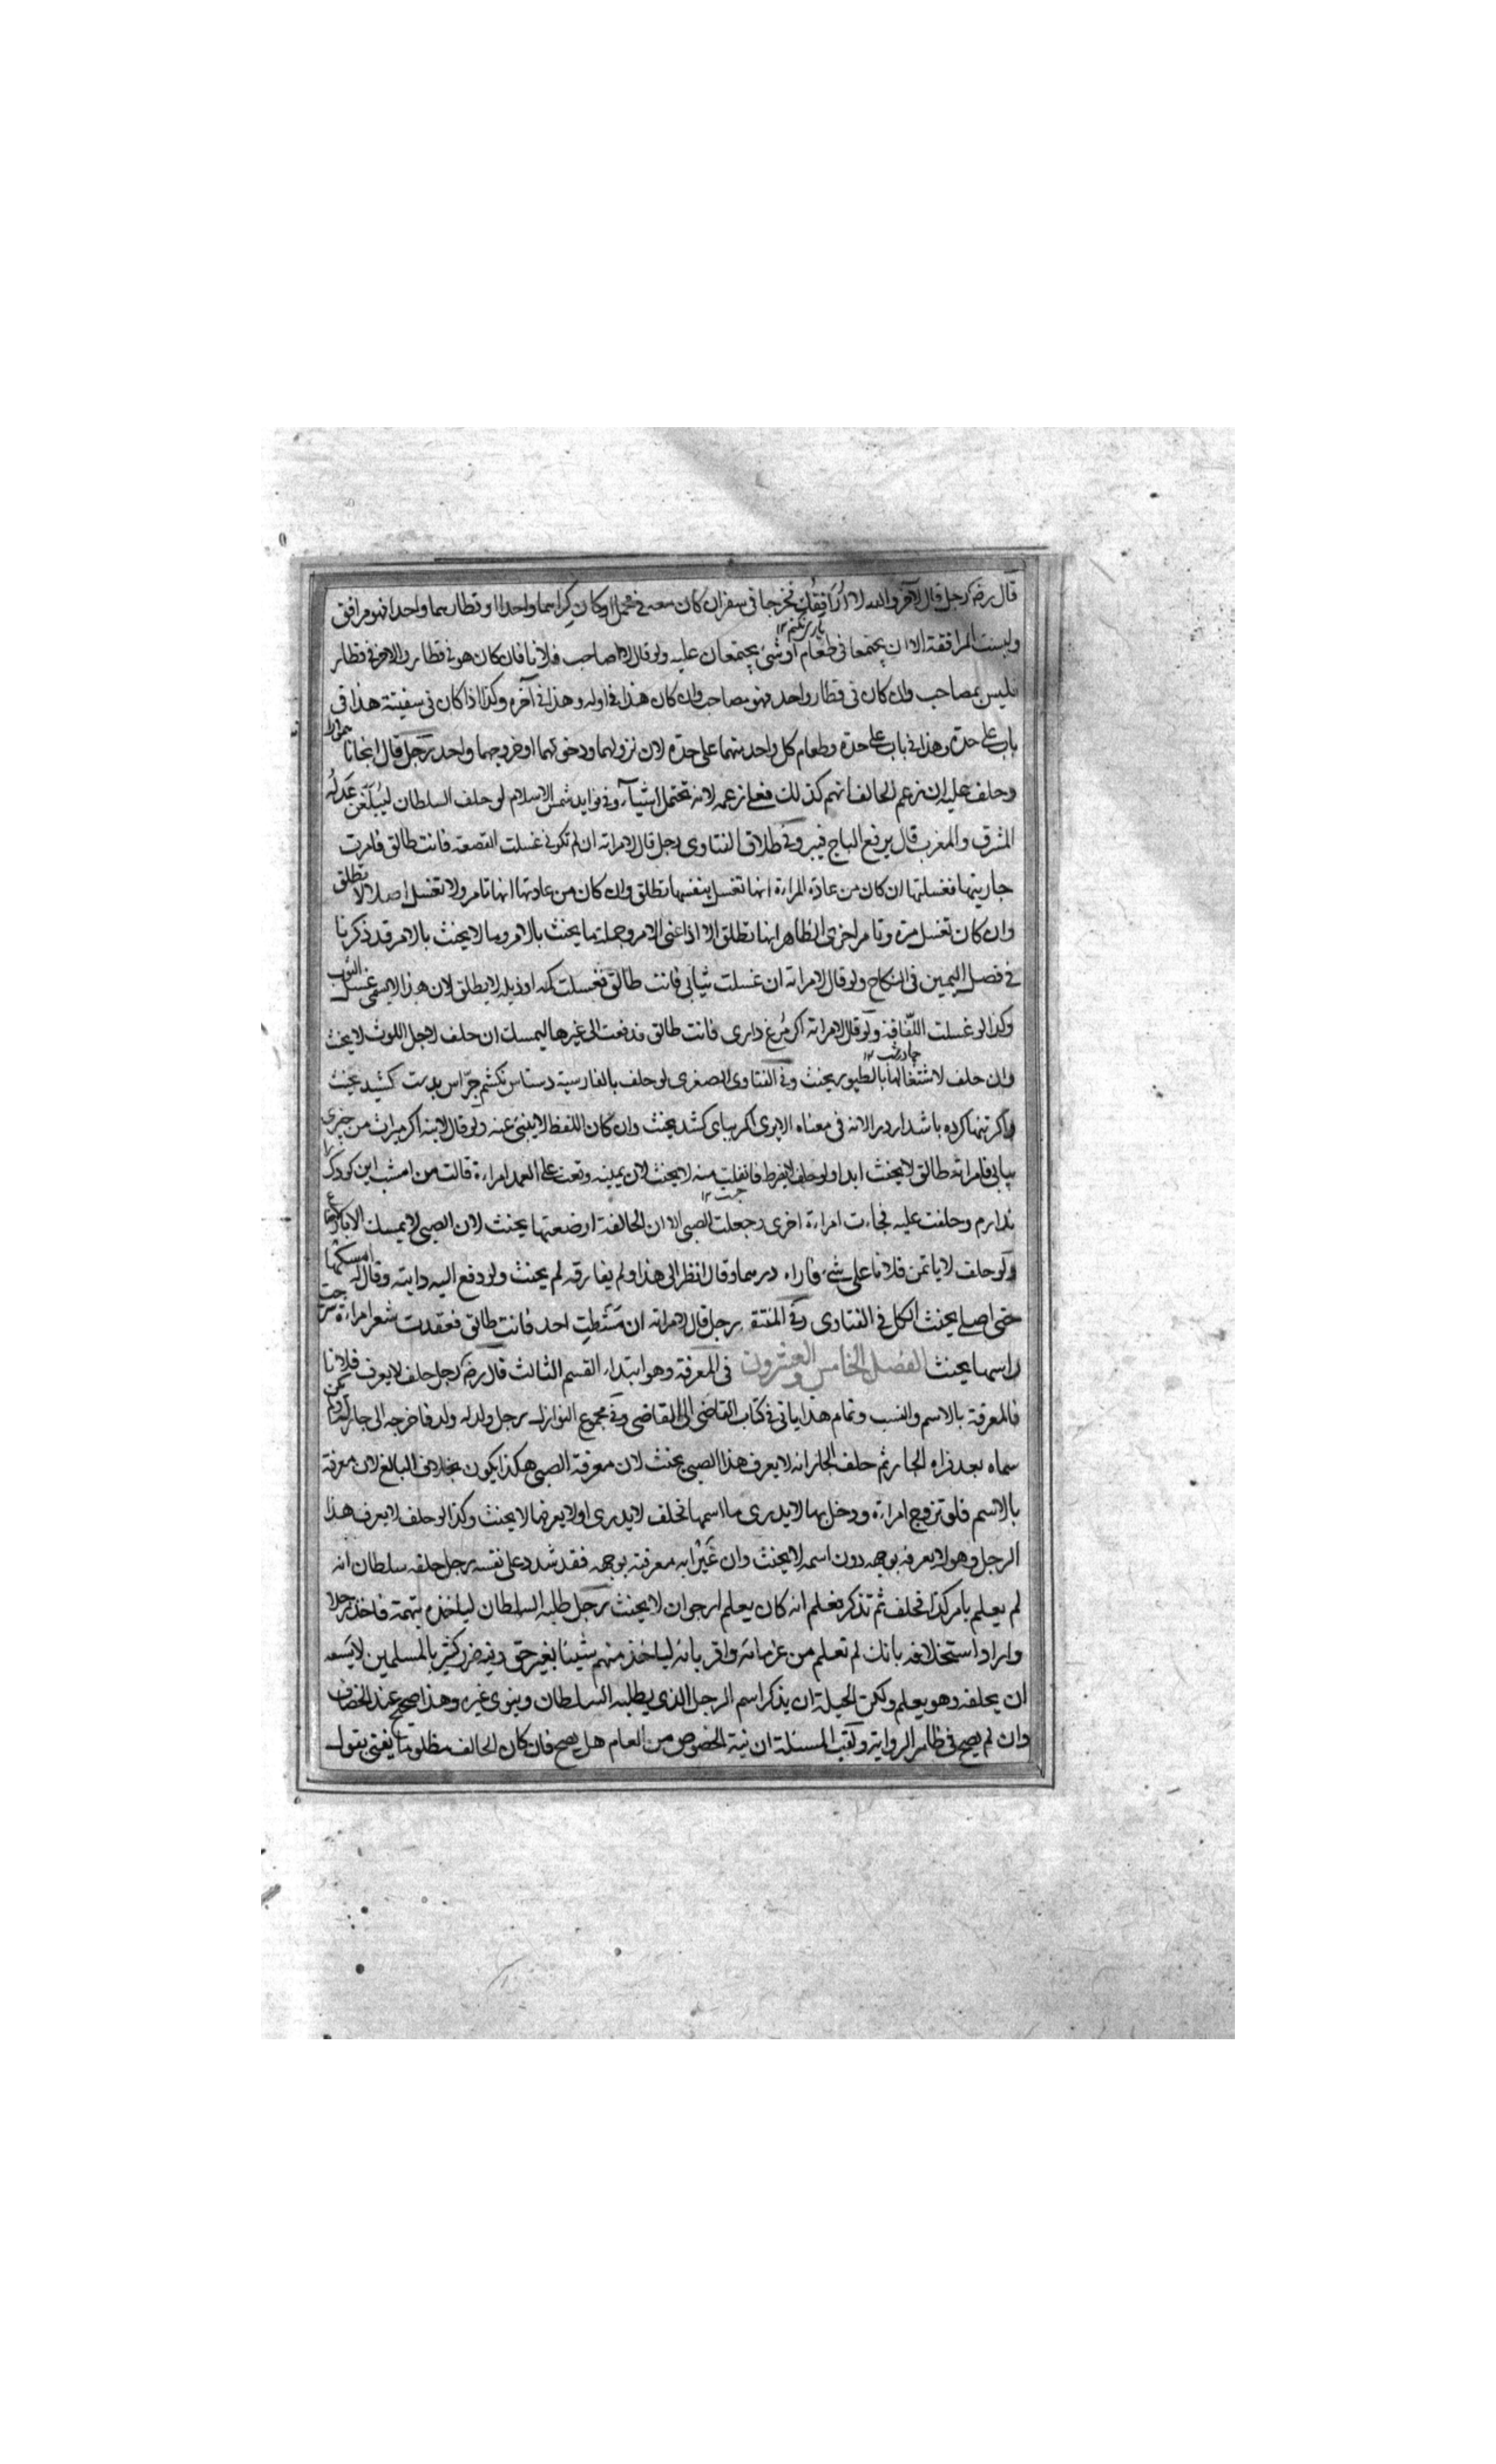 قال رضه رجل قال لآخر والله لا ارافقك فخرجا فى سفر ان كان معه فى محمل او كان كراسهما واحدا او قطارهما واحدا فهو مرافق
وليست المرافقة الا ان يجتمعا فى طعام او شئ يجتمعان عليه ولو قال لا اصاحب فلانا فان كان هو فى قطار والاخر فى قطار
فليس بمصاحب وان كان فى قطار واحد فهو مصاحب وان كان هذا فى اوله وهذا فى آخره وكذا اذا كان فى سفينة هذا فى
باب على حدة وهذا فى باب على حدة وطعام كل واحد منهما على حدة لان نزولهما ودخولهما او خروجهما واحد رجل قال
وحلف عليه ان زعم الحالف انهم كذلك فعلى زعمه لانه تحتمل اشياء وفى فوايد شمس الاسلام لو حلف السلطان ليبلغن عدله
المشرق والمغرب قال يرفع الباج فيبر وفى طلاق الفتاوى رجل قال لامراته ان لم تكونى غسلت القصعة فانت طالق فامرت
جاريتها فغسلتها ان كان من عادة المراة انها تغسل بنفسها تطلق وان كان من عادتها انها تامر ولا تغسل اصلا لا تطلق
وان كان تغسل مرة وتامر اخرى الظاهر انها تطلق الا اذا عنى الامر وجملة ما يحنث بالامر وما لا يحنث بالامر قد ذكرنا
فى فصل اليمين فى النكاح ولو قال لامراته ان غسلت ثيابى فانت طالق فغسلت كمه او ذيله لا يطلق لان هذا لا يسمى غسل الثوب
وكذا لو غسلت اللفافة ولو قال لامراته اكر مرغ دارى فانت طالق فدفعت الى غيرها ليمسك ان حلف لاجل اللوث لا يحنث
وان حلف لاشتغالها بالطيور يحنث وفى الفتاوى الصغرى لو حلف بالفارسية دستاس نكشم جراس بدست كشيد يحنث
واكر تنها كرده باشد ار در الانه فى معناه الا يرى اكر بباى كشد يحنث وان كان اللفظ لا ينبئ عنه ولو قال لابنه اكر ميراث من جيزى
بيابى فامراته طالق لا يحنث ابدا ولو حلف لا يفرط فانفلت منه لا يحنث لان يمينه وقعت على العمد امراة قالت من امشب اين كودك را
ندارم وحلفت عليه فجاءت امراة اخرى وجعلت الصبى الا ان الحالفة ارضعتها يحنث لان الصبى لا يمسك الا
ولو حلف لا ياتمن فلانا على شئ فاراه درهما وقال انظر الى هذا ولم يفارقه لم يحنث ولو دفع اليه دابته وقال له امسكها
حتى اصلى يحنث الكل فى الفتاوى وفى المنتقى رجل قال لامراته ان مشطت احد فانت طالق فعقدت شعر امراة
راسها يحنث الفصل الخامس والعشرون فى المعرفة وهو ابتداء القسم الثالث قال رضه رجل حلف لا يعرف فلانا
فالمعرفة بالاسم والنسب وتمام هذا ياتى فى كتاب القاضى الى القاضى وفى مجموع النوازل رجل ولد له ولد فاخرجه الى جار له ولم يكن
سماه بعد فراه الجار ثم حلف الجار انه لا يعرف هذا الصبى يحنث لان معرفة الصبى هكذا يكون بخلاف البالغ لان معرفة
بالاسم فلو تزوج امراة ودخل بها لا يدرى ما اسمها فحلف لا يدرى او لا يعرفها لا يحنث وكذا لو حلف لا يعرف هذا
الرجل وهو لا يعرفه بوجهه دون اسمه لا يحنث وان عنى به معرفته بوجهه فقد شدد على نفسه رجل حلفه سلطان انه
لم يعلم بامر كذا فحلف ثم تذكر فعلم انه كان يعلم ارجو ان لا يحنث رجل طلبه السلطان لياخذه بتهمة فاخذ رجلا
واراد استحلافه بانك لم تعلم من غرمائه واقربائه لياخذ منهم شيئا بغير حق وفيه ضرر كثير بالمسلمين لا يسعه
ان يحلفه وهو يعلم ولكن الحيلة ان يذكر اسم الرجل الذى يطلبه السلطان وينوى غيره وهذا صحيح عند الخصاف
وان لم يصح فى ظاهر الرواية ولقب المسئلة ان نية الخصوص من العام هل يصح فان كان الحالف مظلوما يفتى بقول